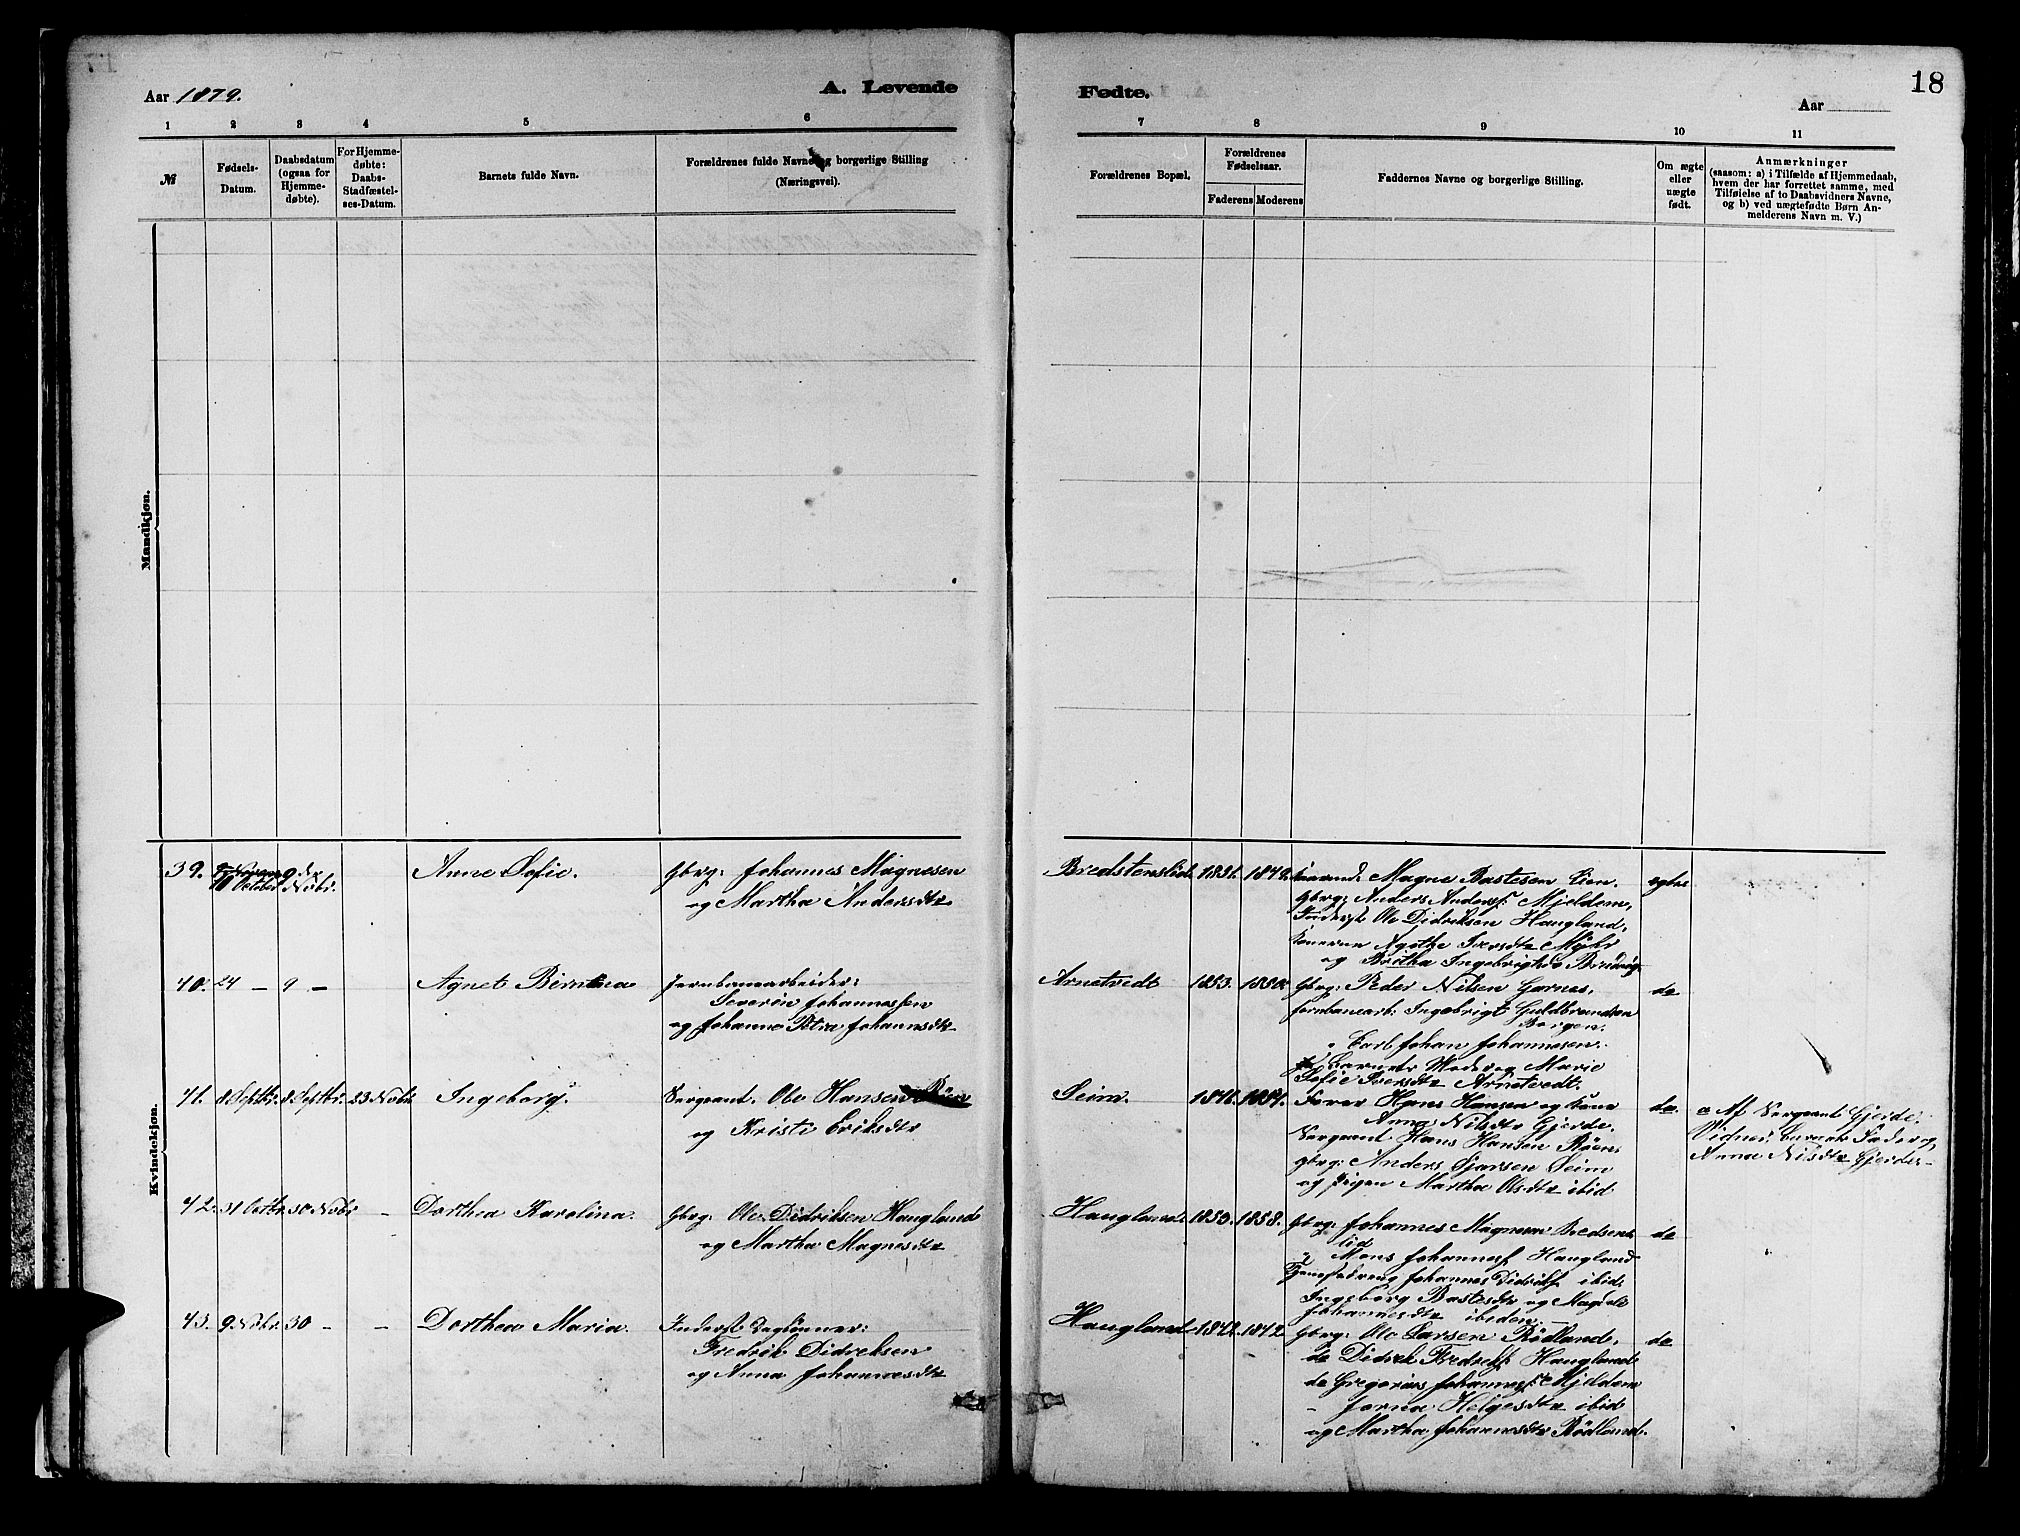 Aar 1879.
A. Levende
Fødte.
18
Aar
1 2 3 4 5 6
7 8 9 10 11
№
Fødsels-Datum.
Daabsdatum (ogsaa for Hjemmedøbte).
For Hjemmedøbte: Daabs-Stadfæstelses-Datum.
Barnets fulde Navn.
Forældrenes fulde Navne og borgerlige Stilling (Næringsvei).
Forældrenes Bopæl.
Forældrenes Fødselsaar.
Faderens Moderens
Faddernes Navne og borgerlige Stilling.
Om ægte eller uægte født.
Anmærkninger
(saasom: a) i Tilfælde af Hjemmedaab,
hvem der har forrettet samme, med
Tilføielse af to Daabsvidners Navne,
og b) ved uægtefødte Børn An-
melderens Navn m. V.)
Mandkjøn.
Kvindekjøn.
39. 10 October 9 de Novbr. Anne Sofie. Gbrg: Johannes Magnesen
og Martha Andersdtr
Bredstenslid 1831. 1840. Magne Bastesen Lien. egte
Gbrg: Anders Anders: Mjeldem,
Inderst Ole Didriksen Haugland,
og Britha Ingebrigtsdr
40. 24 - 9 - Agnet Berntea Jernbanearbeider:
Severin Johannessen
og Johanne Petra Johannsdtr
Arnetvedt 1853. 1850. Gbrg: Peder Nilsen Garnes, do
Jernbanearb: Ingebrigt Guldbrandsen
Borgen.
" Carl Johan Johannesen.
Barnets Moder og Marie
Sofie Iversdtr Arnetvedt.
41. 8 Septbr. 8 Septbr. 23 Novbr Ingeborg. Sergeant. Ole Hansen
og Kristi Eriksdtr
Seim. 1846. 1854. Fører Hans Hansen og Kone do
Anna Nilsdtr Gjerde.
Sergeant Hans Hansen Røen
gbrg: Anders Larsen Seim
og pigen Martha Olsdtr ibid
a Af Sergeant Gjerde.
Vidner: Barnets Fader og
Anna Nilsdtr Gjerde-
42. 31 Octbr. 30 Novbr - Dorthea Karolina. Gbrg: Ole Didriksen Haugland
og Martha Magnesdtr
Haugland. 1853. 1858. Gbrg: Johannes Magnesen Bredsten- do
lid
" Mons Johannesf. Haugland
Tjenestedreng Johannes Didriksf. ibid.
Ingeborg Bastesdtr og Magdeli
Johannesdtr ibiden.
43. 9 Nvbr. 30 - - Dorthea Maria. Inderst Dagløner:
Fredrik Didreksen
og Anna Johannesdtr
Haugland 1842. 1842 Gbrg: Ole Larsen Rødland, do
do Didrek Fredriksf. Haugland
do Gregorius Johannesf. Mjeldem
- Jorina Helgesdtr ibid
og Martha Johannesdtr Rødland.